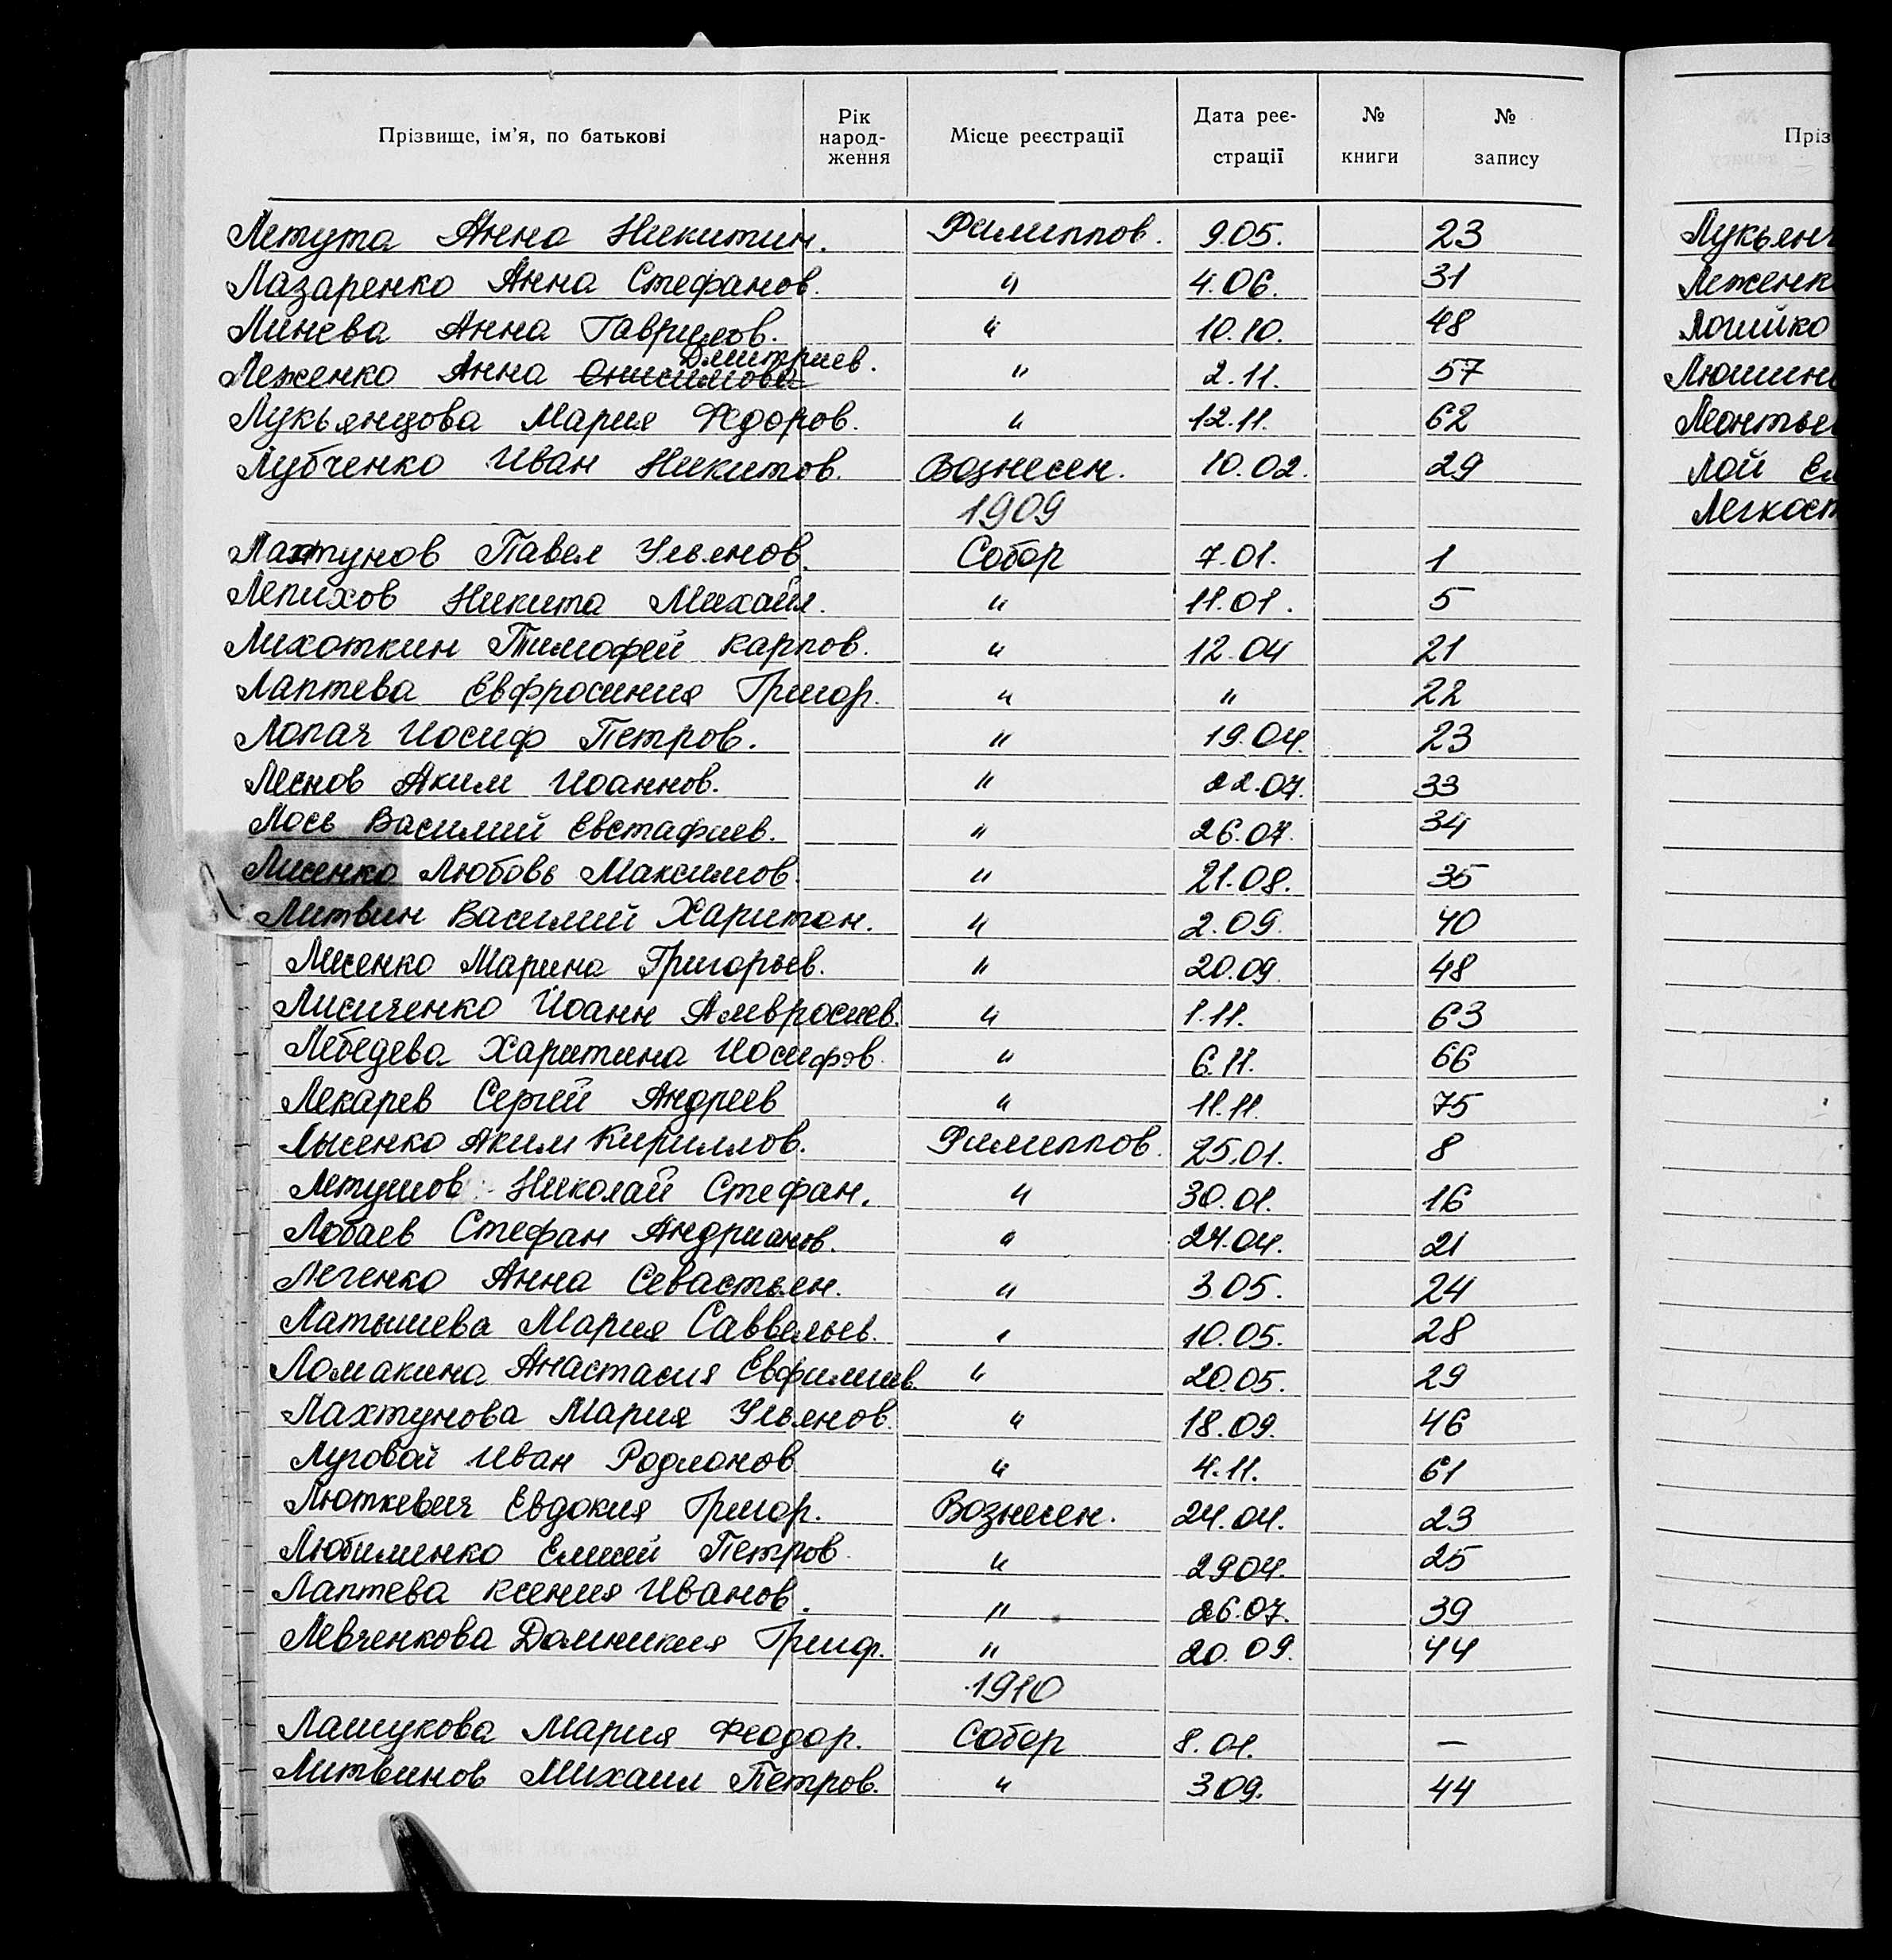 Прізвище, ім'я, по батькові Рік народ-ження Місце реєстрації Дата реє-страції № книги № запису Пріз
Летута Анна Никитин. Филиппов. 9.05. 23
Лазаренко Анна Стефанов. " 4.06. 31
Линева Анна Гаврилов. " 10.10. 48
Леженко Анна Онисимова Дмитриев. " 2.11. 57
Лукьянцова Мария Федоров. " 12.11. 62
Лубченко Иван Никитов. Вознесен. 10.02. 29
1909
Лахтунов Павел Ульянов. Собор 7.01. 1
Лепихов Никита Михайл. " 11.01. 5
Лихоткин Тимофей Карпов. " 12.04 21
Лаптева Евфросиния Григор. " " 22
Лопач Иосиф Петров. " 19.04. 23
Леснов Аким Иоаннов. " 22.07. 33
Лось Василий Евстафиев. " 26.07. 34
Лисенко Любовь Максимов. " 21.08. 35
Литвин Василий Харитон. " 2.09. 40
Лисенко Марина Григорьев. " 20.09. 48
Лисиченко Иоанн Амвросиев. " 1.11. 63
Лебедева Харитина Иосифов. " 6.11. 66
Лекарев Сергей Андреев " 11.11. 75
Лысенко Аким Кириллов. Филиппов. 25.01. 8
Летушов Николай Стефан. " 30.01. 16
Лобаев Стефан Андрианов. " 24.04. 21
Легенко Анна Севастьян. " 3.05. 24
Латышева Мария Саввельев. " 10.05. 28
Ломакина Анастасия Евфимиев. " 20.05. 29
Лахтунова Мария Ульянов. " 18.09. 46
Луговой Иван Родионов " 4.11. 61
Люткевич Евдокия Григор. Вознесен. 24.04. 23
Любименко Елисей Петров " 29.04. 25
Лаптева Ксения Иванов. " 26.07. 39
Левченкова Домникия Григор. " 20.09. 44
1910
Лашукова Мария Феодор. Собор 8.01. —
Литвинов Михаил Петров. " 3.09. 44
Лукьян
Леженк
Логийко
Люшин
Леонтье
Лой Ел
Легкост